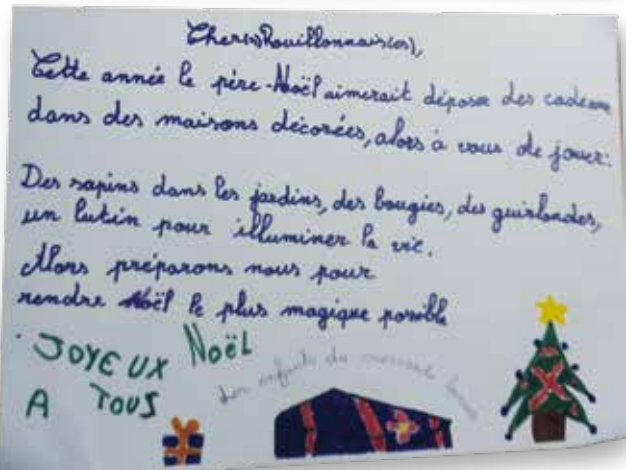 Cher(e)s Rouillonnais(es),
Cette année le père-Noël aimerait déposer des cadeaux
dans des maisons décorées, alors à vous de jouer:
Des sapins dans les jardins, des bougies, des guirlandes,
un lutin pour illuminer la vie.
Alors préparons nous pour
rendre Noël le plus magique possible
JOYEUX NOËL
A TOUS
des enfants du